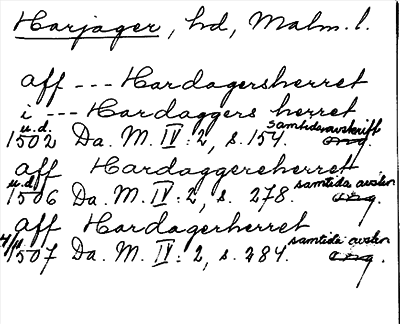 Harjager, hd, Malm. l.
aff --- Hardagersherret
i --- Hardaggers herret
u.d. samtida avskrift
1502 Da. M. IV: 2, s. 154. orig.
aff Hardaggereherret
u.d. samtida avskr
1506 Da. M. IV: 2, s. 278. orig.
aff Hardagerherret
samtida avskr
1507 Da. M. IV: 2, s. 284. orig.